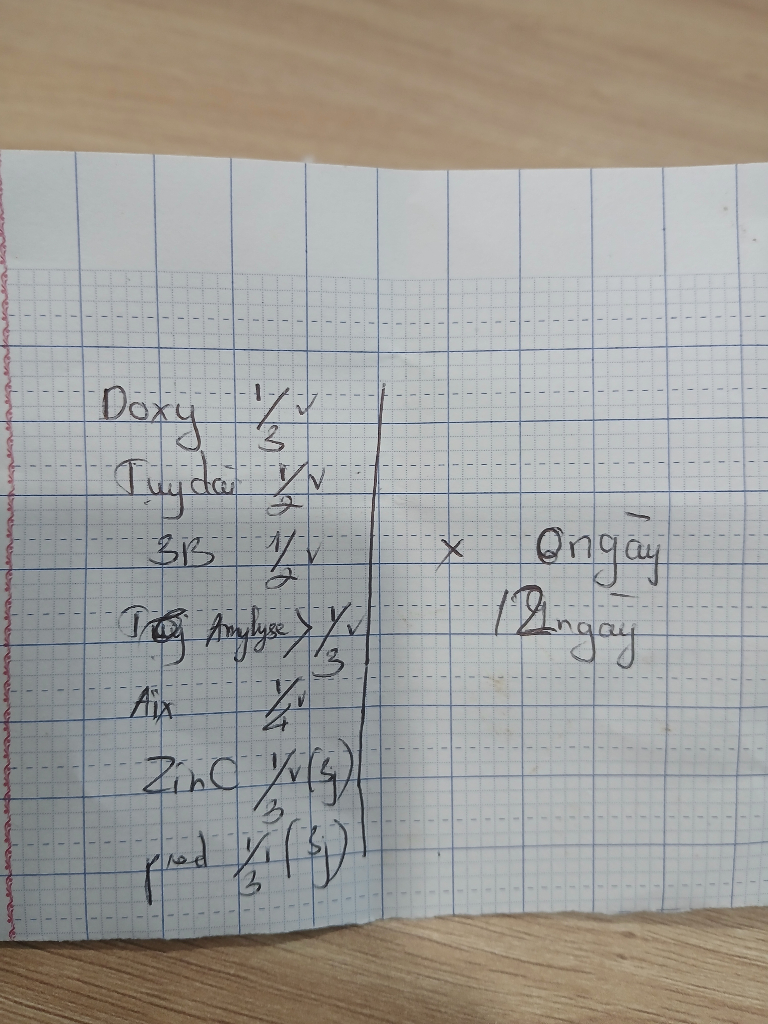 Doxy 1/3 v
Tuydai 1/2 v
3B 1/2 v
Amylyse > 1/3 v
Aix 1/4 v
ZinC 1/3 v (Sj)
pred 1/3 (Sj)
x ngày
12ngày